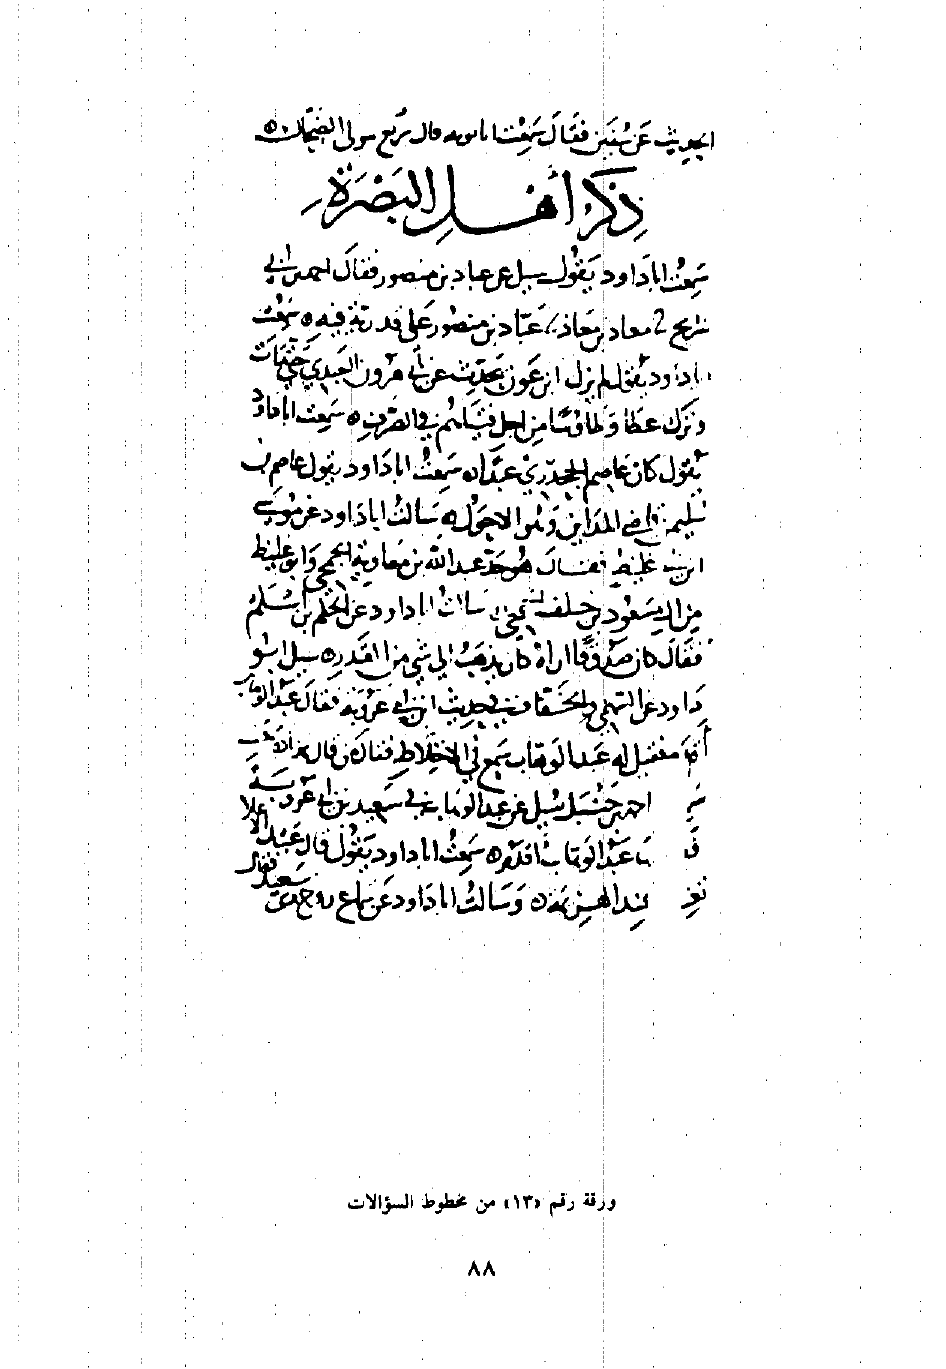 الحديث عن سفين فقال سمعت ابا نوبه قال بزيع مولى الضحاك
ذكر أهل البصرة
سمعت ابا داود يقول سيل عن عباد بن منصور فقال احمد بن ابي
سريج معاذ بن معاذ عباد بن منصور على قدرية فيه سمعت
ابا داود يقول لم يزل ابن عون يحدث عن أبي هرون العبدي حتى مات
وترك عطا وطاوسا من اجل فتياهم في الصرف سمعت ابا داود
يقول كان عاصم الجحدري عبدا سمعت ابا داود يقول عاصم بن
سليم قاضي المداين وهو الاحول سالت ابا داود عن موسى
ابن غليظ فقال هو جد عبد الله بن معاوية الجمحي وابو غليظ
من ال مسعود بن خلف الجمحي سالت ابا داود عن الحكم بن
فقال كان صدوقا اراه كان يذهب الى شي من القدر سيل ابو
داود عن السهمي والخفاف في حديث ابن ابي عروبة فقال عبد الوهاب
فقيل له عبد الوهاب سمع في الاختلاط فقال من قال هذا
احمد بن حنبل سيل عن عبد الوهاب في سعيد بن ابي عروبة
عبد الوهاب اقدم سمعت ابا داود يقول قال عبد الاعلا
الهزيمة وسالت ابا داود عن سماع روح من سعيد فقال
ورقة رقم «١٣» من مخطوط السؤالات
٨٨